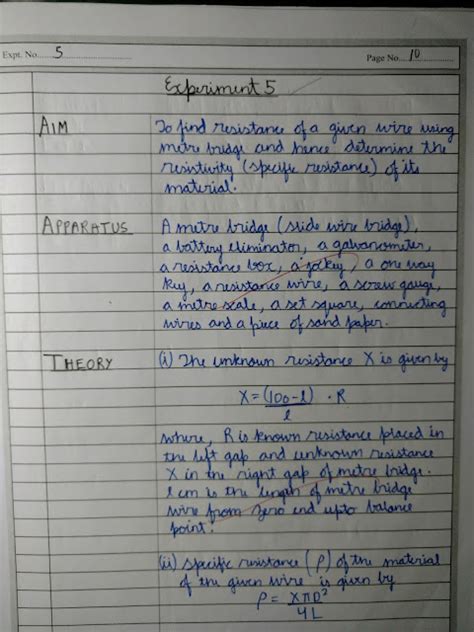 Expt. No. 5
Page No. 10
Experiment 5
AIM
To find resistance of a given wire using
metre bridge and hence determine the
resistivity (specific resistance) of its
material.
APPARATUS
A metre bridge (slide wire bridge),
a battery eliminator, a galvanometer,
a resistance box, a jockey, a one way
key, a resistance wire, a screw gauge,
a metre scale, a set square, connecting
wires and a piece of sand paper.
THEORY
(i) The unknown resistance X is given by
X = (100-l) . R
l
where, R is known resistance placed in
the left gap and unknown resistance
X in the right gap of metre bridge.
l cm is the length of metre bridge
wire from zero end upto balance
point.
(ii) Specific resistance (ρ) of the material
of the given wire is given by
ρ = XπD²
4L